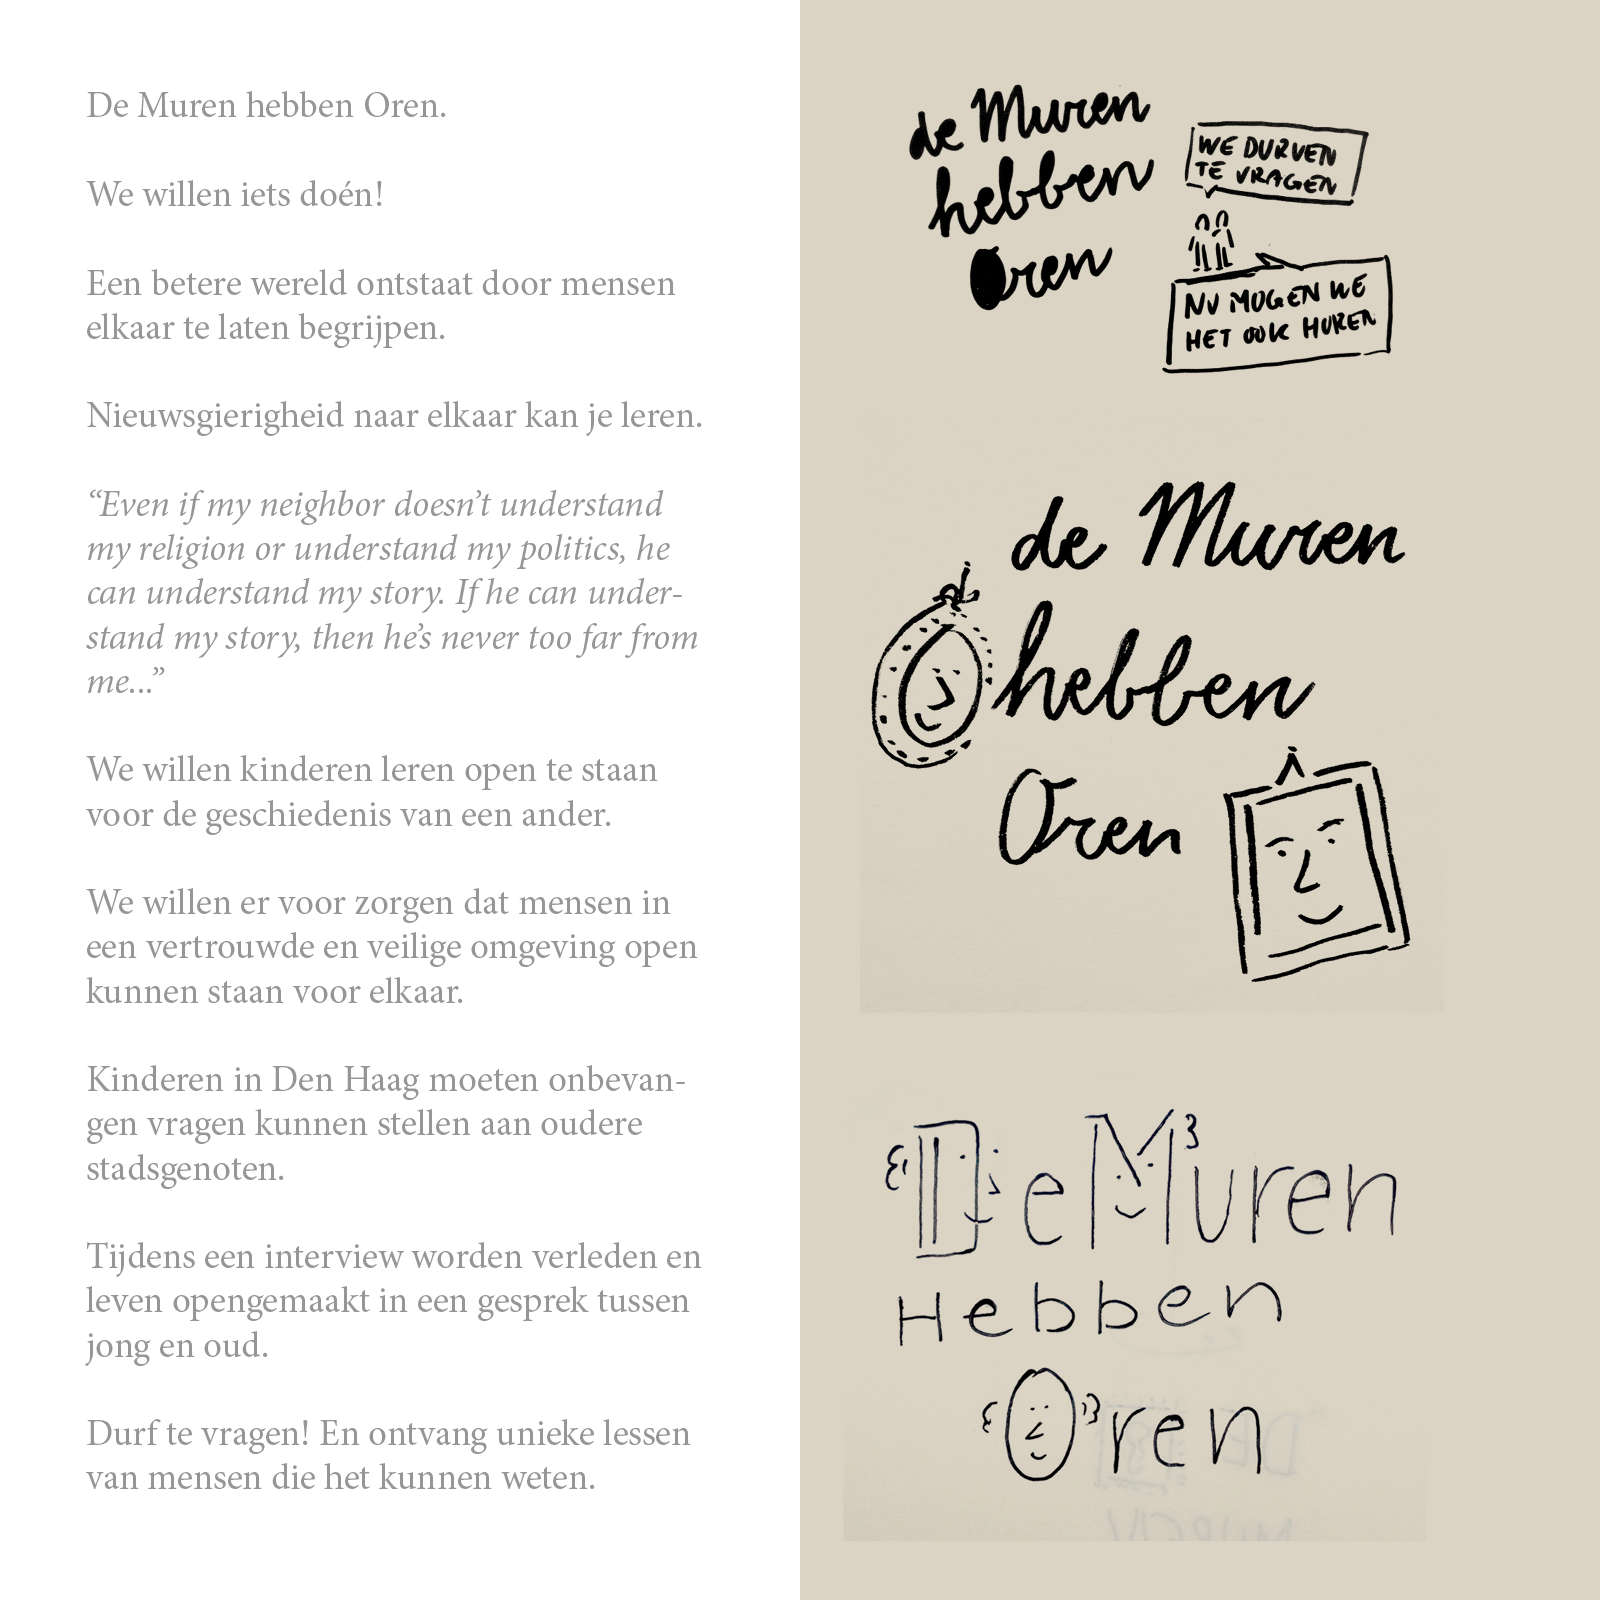 De Muren hebben Oren.
We willen iets doén!
Een betere wereld ontstaat door mensen
elkaar te laten begrijpen.
Nieuwsgierigheid naar elkaar kan je leren.
“Even if my neighbor doesn’t understand
my religion or understand my politics, he
can understand my story. If he can under-
stand my story, then he’s never too far from
me...”
We willen kinderen leren open te staan
voor de geschiedenis van een ander.
We willen er voor zorgen dat mensen in
een vertrouwde en veilige omgeving open
kunnen staan voor elkaar.
Kinderen in Den Haag moeten onbevan-
gen vragen kunnen stellen aan oudere
stadsgenoten.
Tijdens een interview worden verleden en
leven opengemaakt in een gesprek tussen
jong en oud.
Durf te vragen! En ontvang unieke lessen
van mensen die het kunnen weten.
de Muren
hebben
Oren
WE DURVEN
TE VRAGEN
NU MOGEN WE
HET OOK HUREN
de Muren
hebben
Oren
De Muren
Hebben
Oren
DE
MUREN